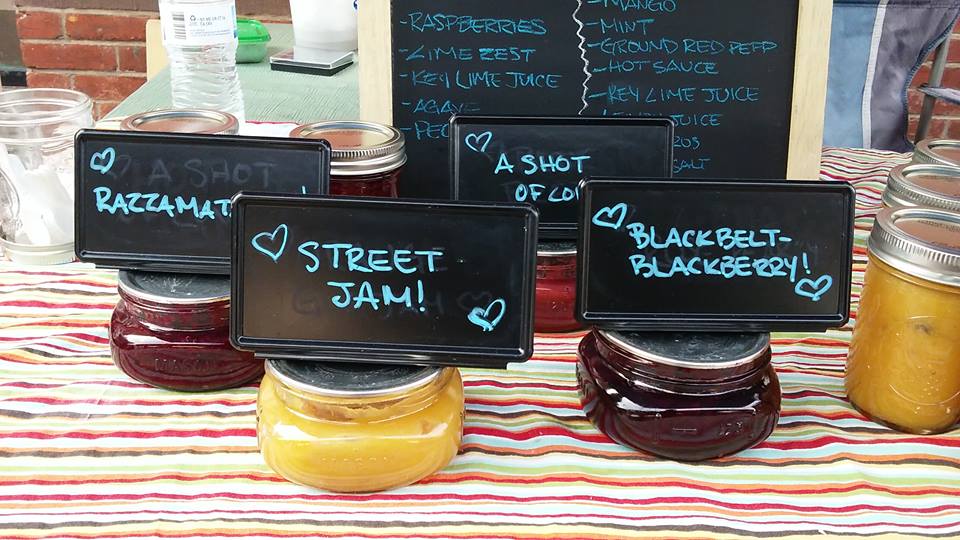 -RASPBERRIES
-LIME ZEST
-KEY LIME JUICE
-AGAVE
-MANGO
-MINT
-GROUND RED PEPP
-HOT SAUCE
-KEY LIME JUICE
JUICE
SALT
A SHOT
RAZZAMAT
A SHOT
OF
STREET
JAM!
BLACKBELT-
BLACKBERRY!
MASON